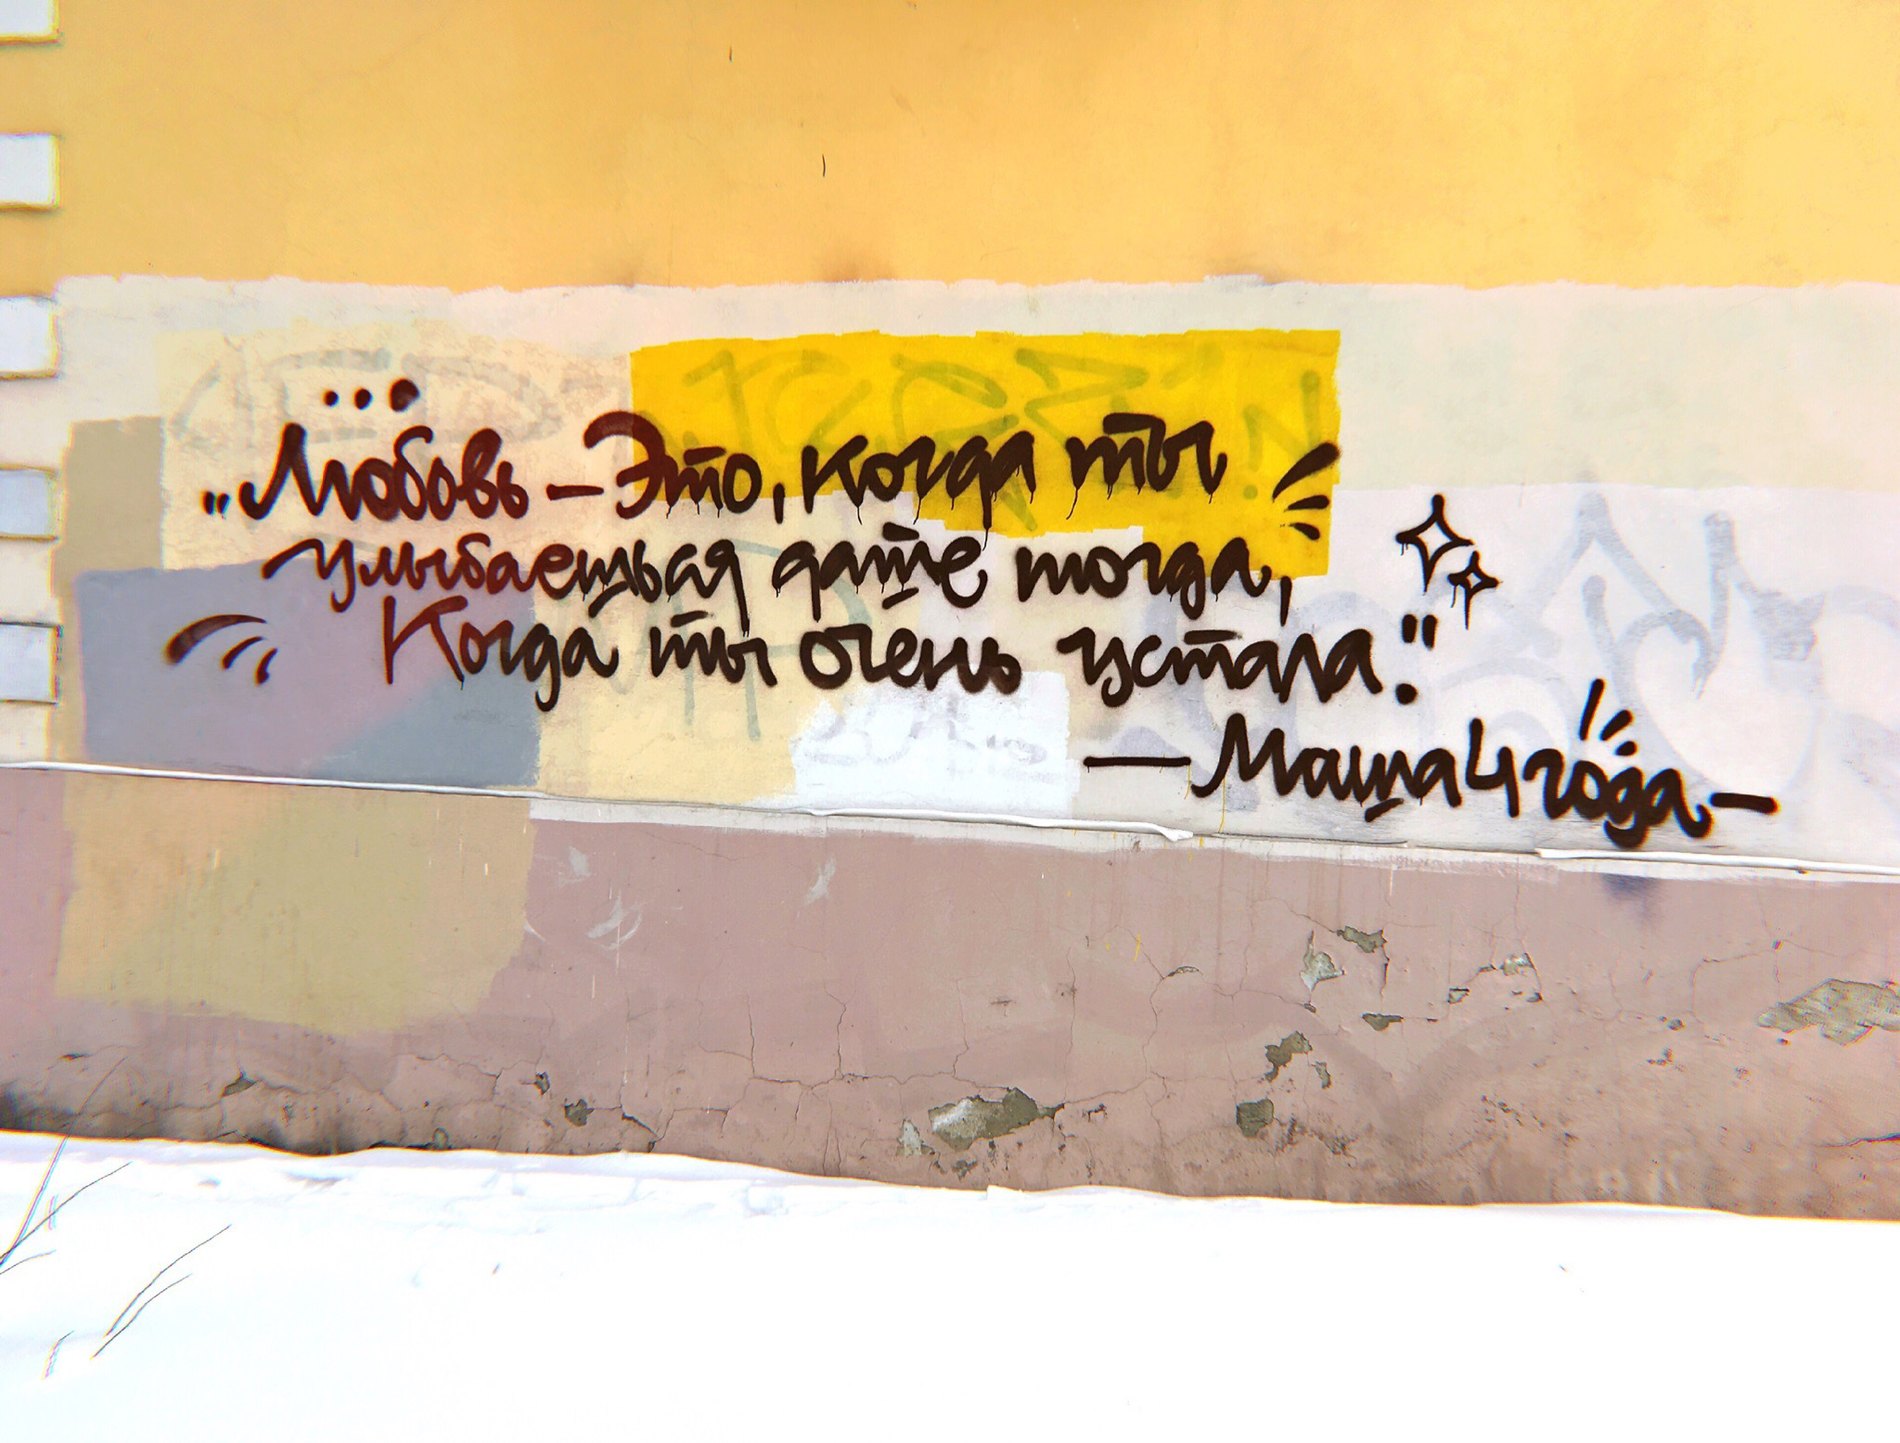 „Любовь – Это, когда ты
улыбаешься даже тогда,
Когда ты очень устала."
— Маша 4 года –